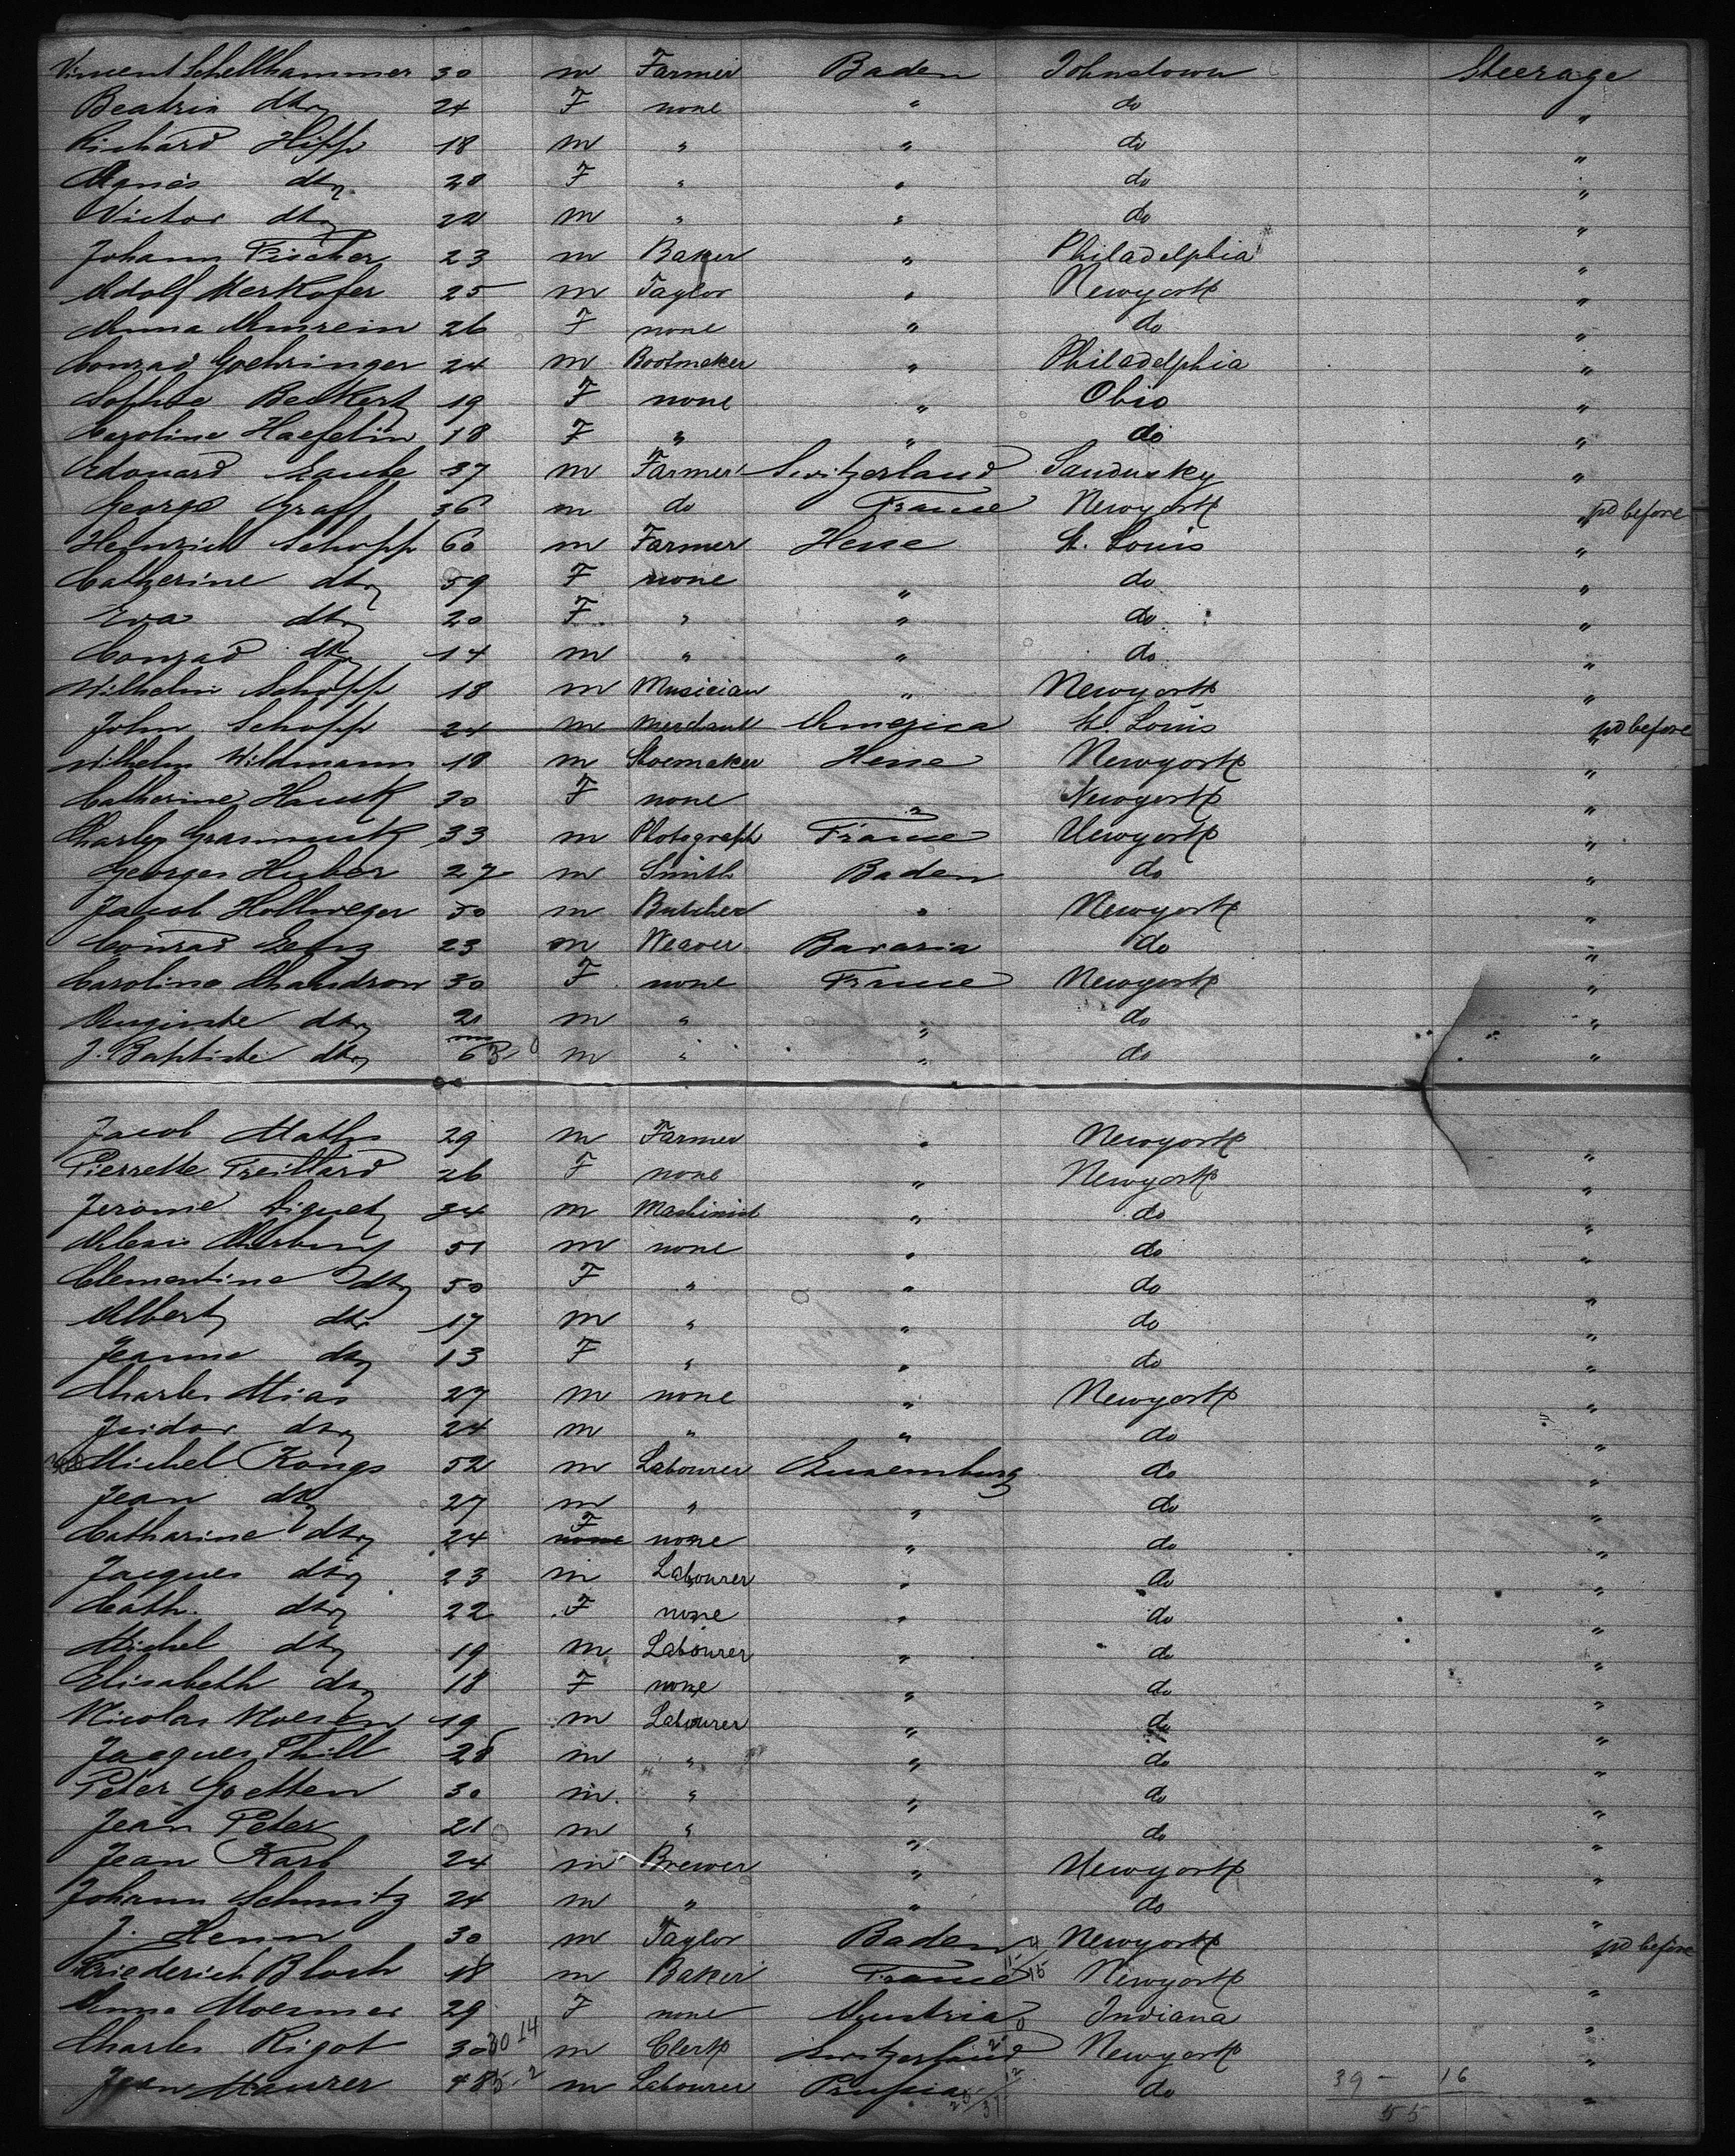 Vincent Schellhammer 30 m Farmer Baden Johnstown Steerage
Beatrix dto 24 F none " do "
Richard Hipp 18 m " " do "
Agnes dto 20 F " " do "
Victor dto 22 m " " do "
Johann Fischer 23 m Baker " Philadelphia "
Adolf Merkofer 25 m Taylor " Newyork "
Anna Amrein 26 F none " do "
Conrad Goehringer 24 m Bootmaker " Philadelphia "
Sophie Beckert 19 F none " Ohio "
Caroline Haefelin 18 F " " do "
Edouard Laube 37 m Farmer Switzerland Sandusky "
George Graff 36 m do France Newyork " pd before
Heinrich Schopp 60 m Farmer Hesse St. Louis "
Catherine dto 59 F none " do "
Eva dto 20 F " " do "
Conrad dto 14 m " " do "
Wilhelm Schopp 18 m Musician " Newyork "
John Schopp 24 m Merchant America St. Louis " pd before
Wilhelm Wildmann 18 m Shoemaker Hesse Newyork "
Catherine Hauck 30 F none Newyork "
Charles Grasmuck 33 m Photograph France Newyork "
Georges Huber 27 m Smith Baden do "
Jacob Hollweger 50 m Butcher " Newyork "
Conrad Lenz 23 m Weaver Bavaria do "
Caroline Chaudron 30 F none France Newyork "
Auguste dto 21 m " " do "
J. Baptiste dto 6 m " " do "
Jacob Mathis 29 m Farmer " Newyork "
Pierrette Treillard 26 F none " Newyork "
Jerome Siguet 34 m Machinist " do "
Alexis 51 m none " do "
Clementine dto 50 F " " do "
Albert dto 17 m " " do "
Jeanne dto 13 F " " do "
Charles Mias 27 m none " Newyork "
Isidor dto 24 m " " do "
Michel Kongs 52 m Labourer Luxemburg do "
Jean dto 27 m " " do "
Catharine dto 24 F none none " do "
Jacques dto 23 m Labourer " do "
Cath. dto 22 F none " do "
Michel dto 19 m Labourer " do "
Elisabeth dto 18 F none " do "
Nicolas Moesen 19 m Labourer " do "
Jacques Thill 28 m " " do "
Peter Goetten 30 m " " do "
Jean Peter 21 m " " do "
Jean Karb 24 m Brewer " Newyork "
Johann Schmitz 24 m " " do "
J. Henn 30 m Taylor Baden Newyork " pd before
Friederich Bloch 18 m Baker France 15 Newyork "
Anna Moesmer 29 F none Austria Indiana "
Charles Rigot 30 30 14 m Clerk Switzerland Newyork "
Jean Maurer 48 m Labourer Prussia do 39 - 16 "
55